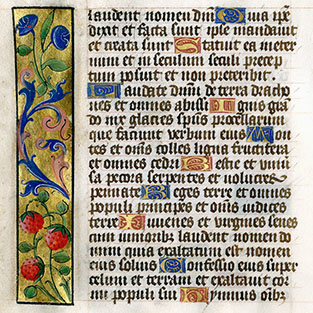 laudent nomen dñi Quia ipẽ
dixit et facta sunt ipse mandauit
et creata sunt Statuit ea in eter
num et in seculum seculi precep
tum posuit et non preteribit.
Laudate dñm de terra dracho
nes et omnes abissi Ignis gran
do nix glacies spũs procellarum
que faciunt verbum eius Mon
tes et omnes colles ligna fructifera
et omnes cedri Bestie et vniũ
sa pecora serpentes et volucres
pennate Reges terre et omnes
populi principes et omnes iudices
terre Iuuenes et virgines senes
cum iunioribus laudent nomen do
mini quia exaltatum est nomen
eius solius Confessio eius super
celum et terram et exaltauit cor
nu populi sui Hymnus oĩbz